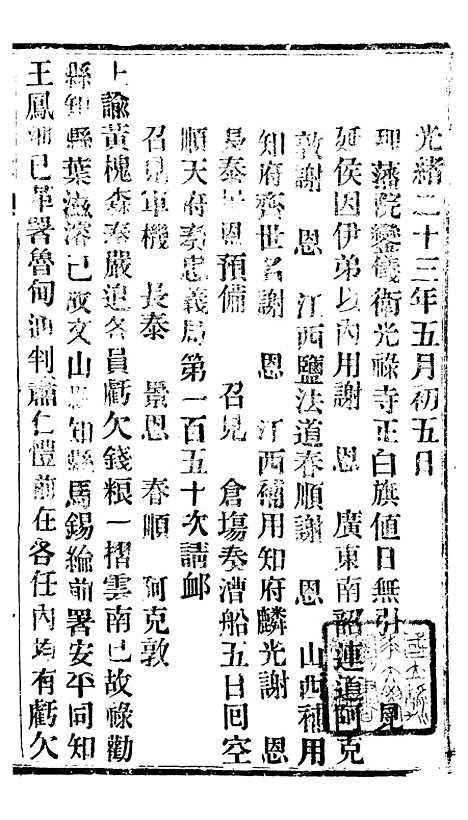 光緒二十三年五月初五日
理藩院鑾儀衛光祿寺正白旗値日無引見
延侯因伊弟以內用謝　恩　廣東南韶連道阿克
敦謝　恩　江西鹽法道春順謝　恩　山西補用
知府齊世名謝　恩　江西補用知府麟光謝　恩
長泰景恩預備　召見　倉塲奏漕船五日回空
順天府奏忠義局第一百五十次請衈
召見軍機　長泰　景恩　春順　阿克敦
上諭黃槐森奏嚴追各員虧欠錢粮一摺雲南已故祿勸
縣知縣葉滋溶已故文山縣知縣馬錫綸前署安平同知
王鳳已革署魯甸通判蕭仁愷前在各任內均有虧欠